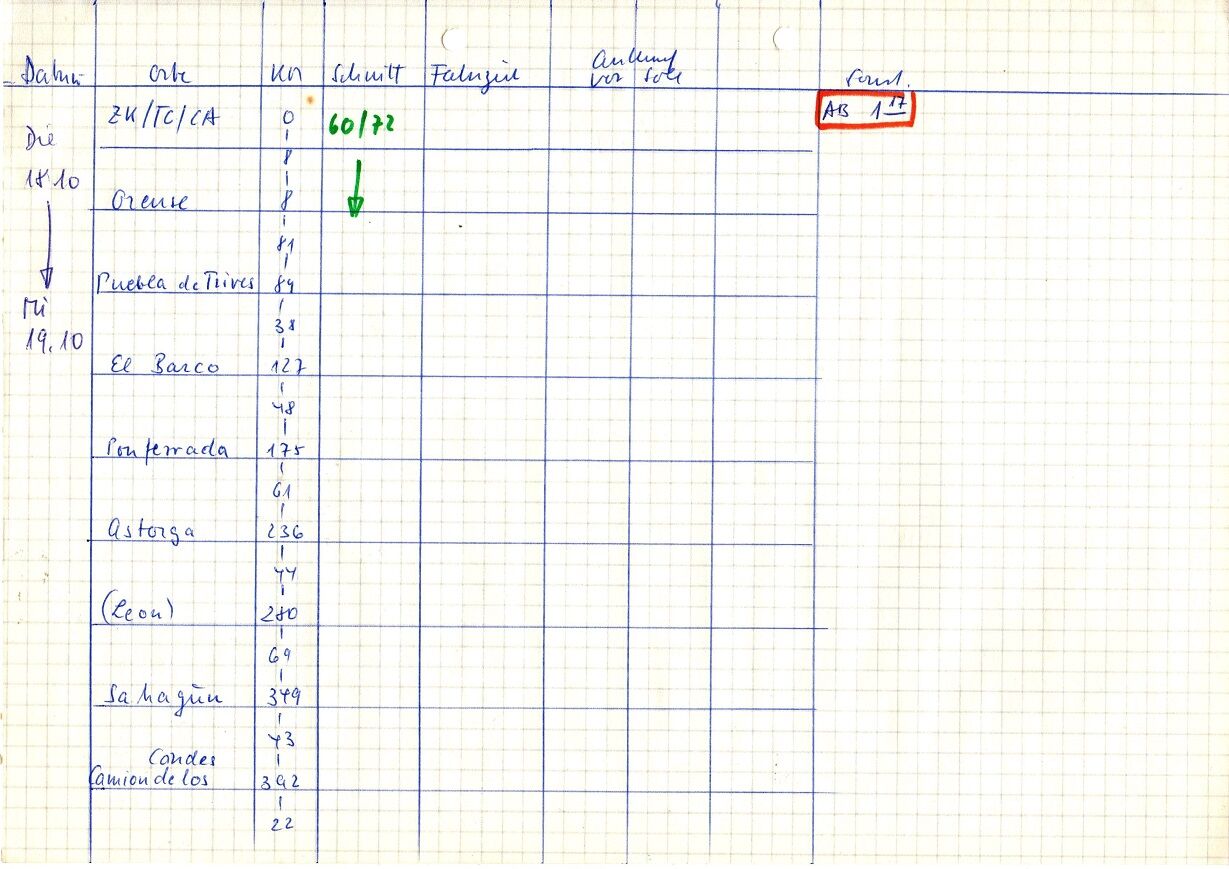 Datum Orte Km Schnitt Fahrziel Ankunft vor Soll Sonst.
ZK/TC/CA 0 60/72 AB 1 17
Die
8
18.10
Orense 8
81
Puebla de Trives 89
Mi
38
19.10
El Barco 127
48
Ponferrada 175
61
Astorga 236
44
(Leon) 280
69
Sahagün 349
43
Condes
Camion de los 392
22